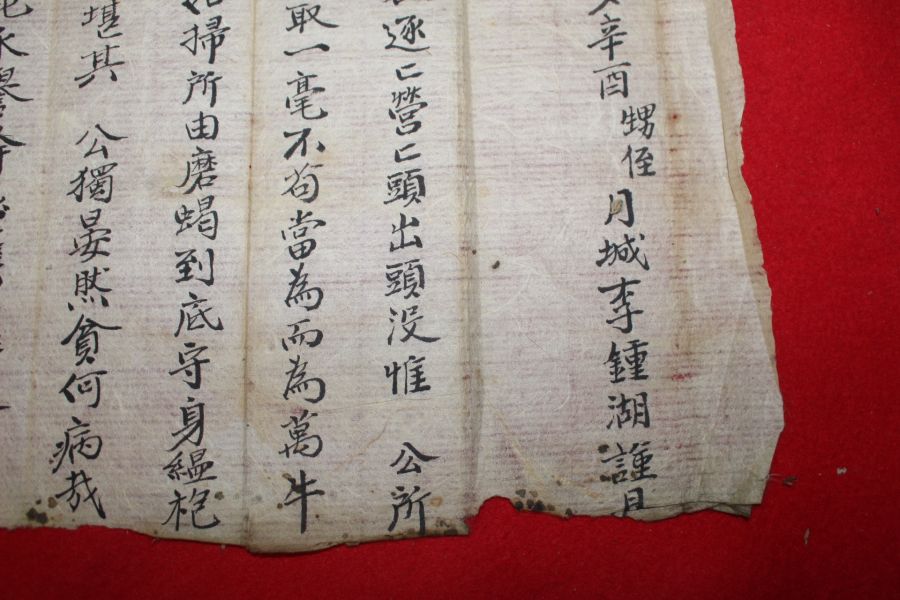 辛酉 甥侄 月城李鍾湖謹具
逐〻營〻頭出頭沒惟 公所
取一毫不苟當為而為萬牛
掃所由磨蝎到底守身縕袍
堪其 公獨晏然貧何病哉